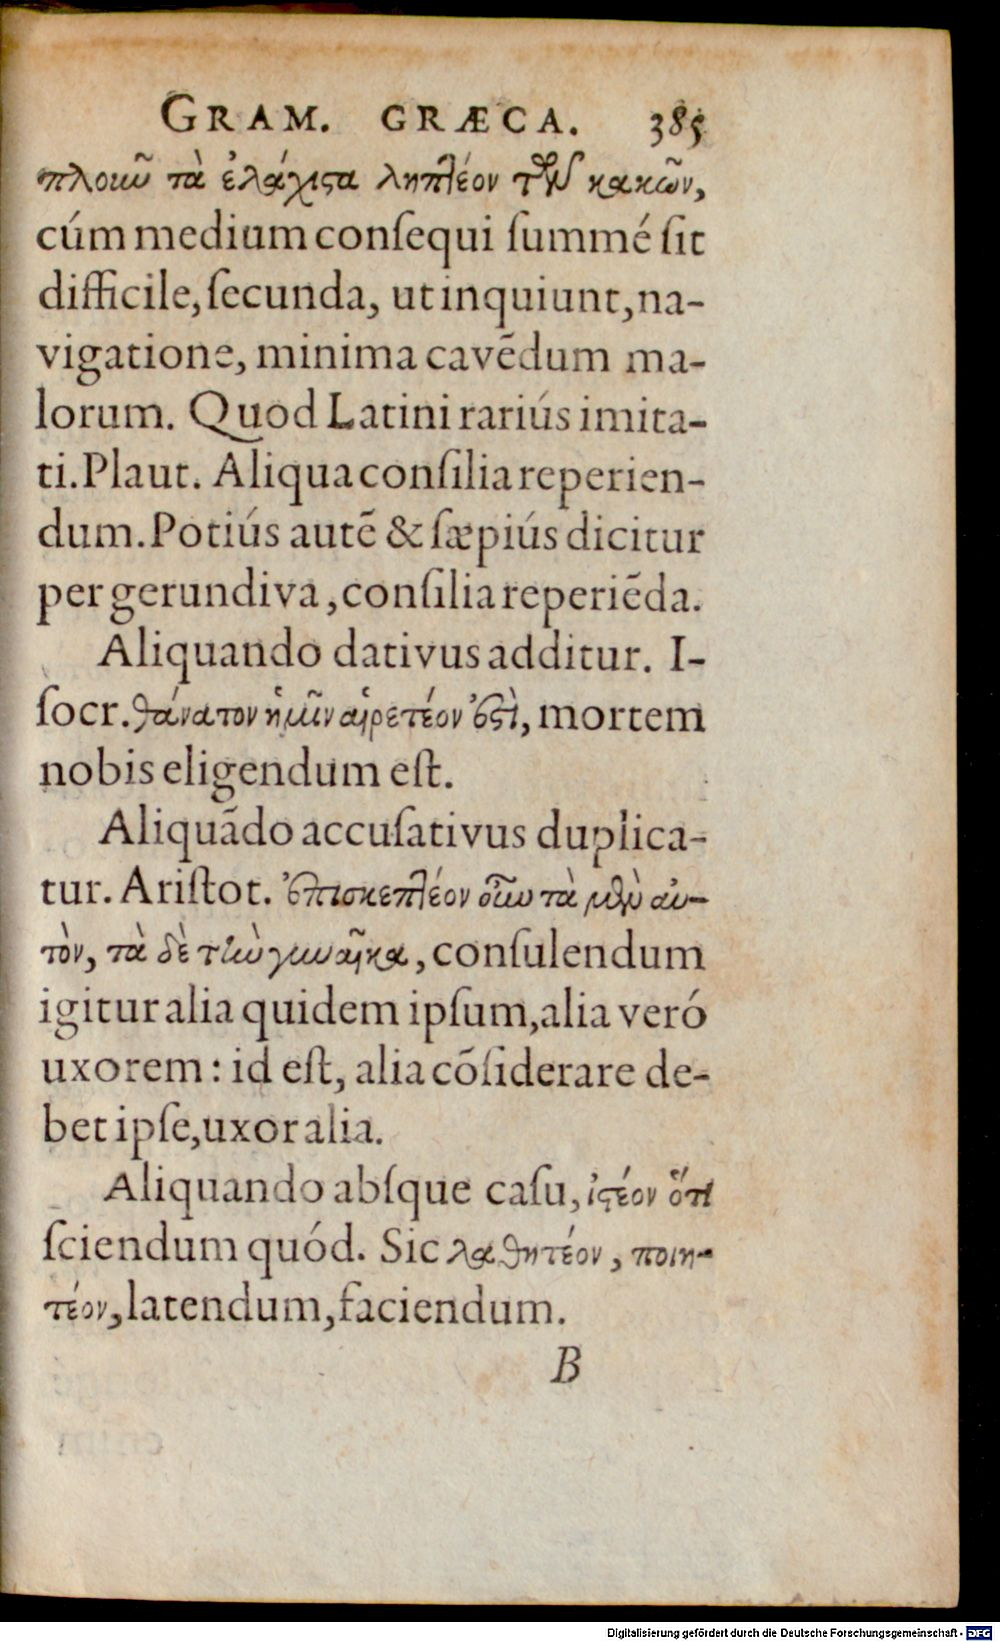 GRAM. GRÆCA. 385
πλοιῶ τὰ ἐλάχιςα ληπτέον τῶν κακῶν,
cúm medium conſequi ſummé ſit
difficile, ſecunda, ut inquiunt, na-
vigatione, minima cavēdum ma-
lorum. Quod Latini rariús imita-
ti. Plaut. Aliqua conſilia reperien-
dum. Potiús autē & ſæpiús dicitur
per gerundiva, conſilia reperiēda.
Aliquando dativus additur. I-
ſocr. θάνατον ἡμῖν αἱρετέον ἐςὶ, mortem
nobis eligendum eſt.
Aliquādo accuſativus duplica-
tur. Ariſtot. ἐπισκεπτέον οὖν τὰ μὲν αὐ-
τὸν, τὰ δὲ τὴν γυναῖκα, conſulendum
igitur alia quidem ipſum, alia veró
uxorem: id eſt, alia cōſiderare de-
bet ipſe, uxor alia.
Aliquando abſque caſu, ἰςέον ὅτι
ſciendum quód. Sic λαθητέον, ποιη-
τέον, latendum, faciendum.
B
Digitalisierung gefördert durch die Deutsche Forschungsgemeinschaft - DFG